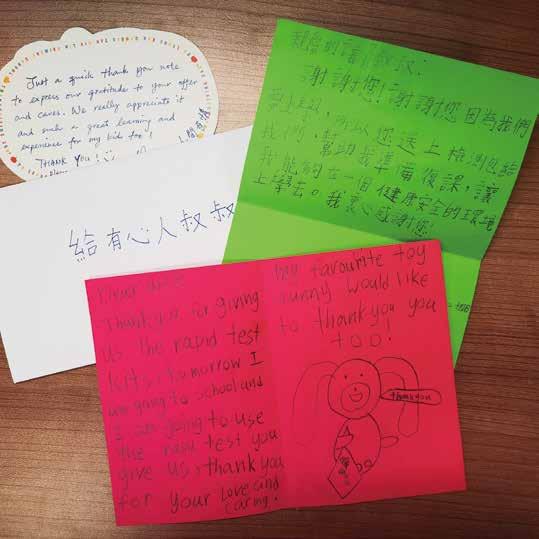 Just a quick thank you note
to express our gratitude to your offer
and cares. We really appreciate it
and such a great learning and
experience for my kid too!
THANK YOU!
謝謝您!謝謝您因為我們
所以您送上檢測包給
我們,幫助我準備復課,讓
我能夠在一個健康安全的環境
上學去。我衷心感謝您!
給有心人叔叔
Thank you for giving
us the rapid test
kits, tomorrow I
am going to school and
I am going to use
the rapid test you
give us, thank you
for your Love and
caring!
my favourite toy
bunny would like
to thank you you
too!
thank you